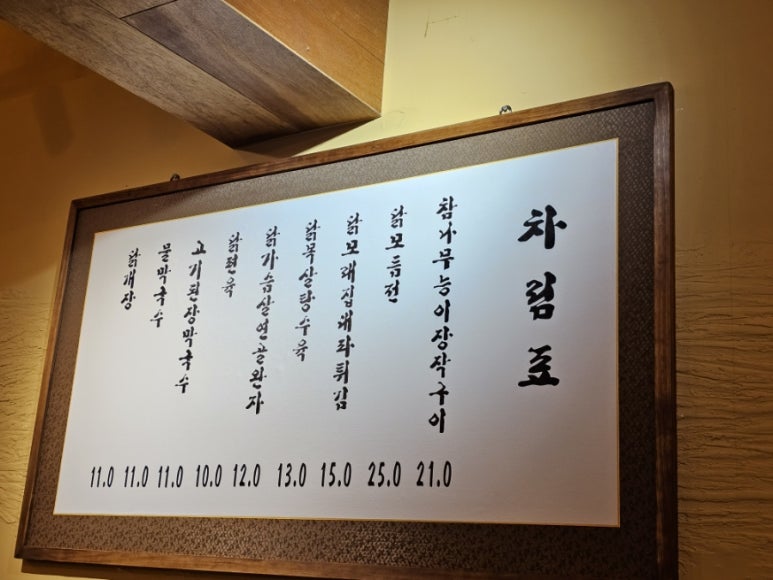 차림표
참나무능이장작구이 21.0
닭모듬전 25.0
닭모래집대파튀김 15.0
닭목살탕수육 13.0
닭가슴살연골완자 12.0
닭편육 10.0
고기된장막국수 11.0
물막국수 11.0
닭개장 11.0